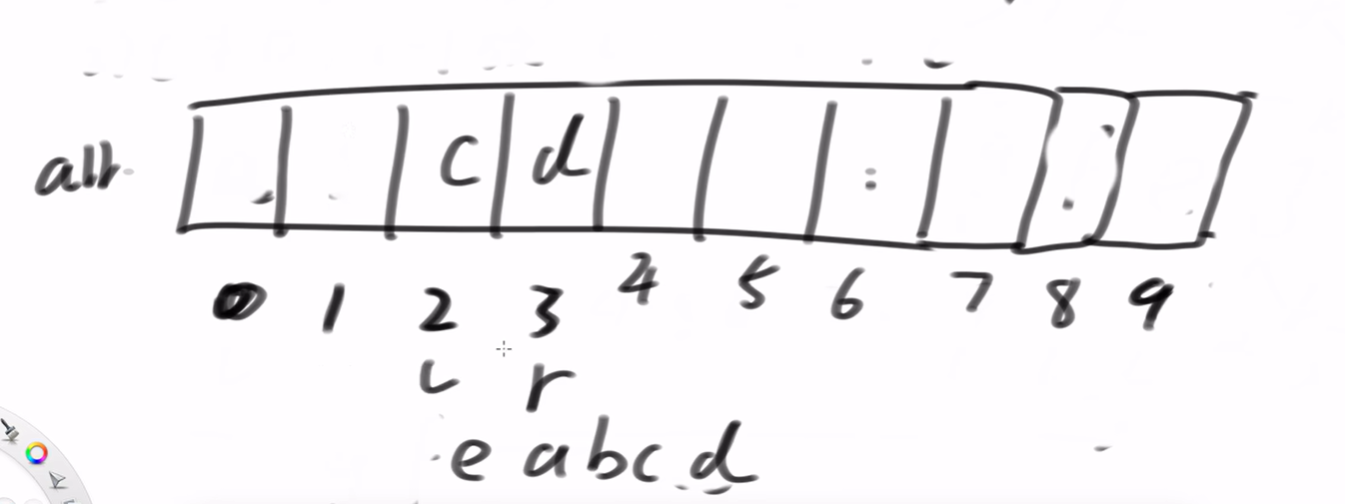 arr
c d
0 1 2 3 4 5 6 7 8 9
L r
e a b c d